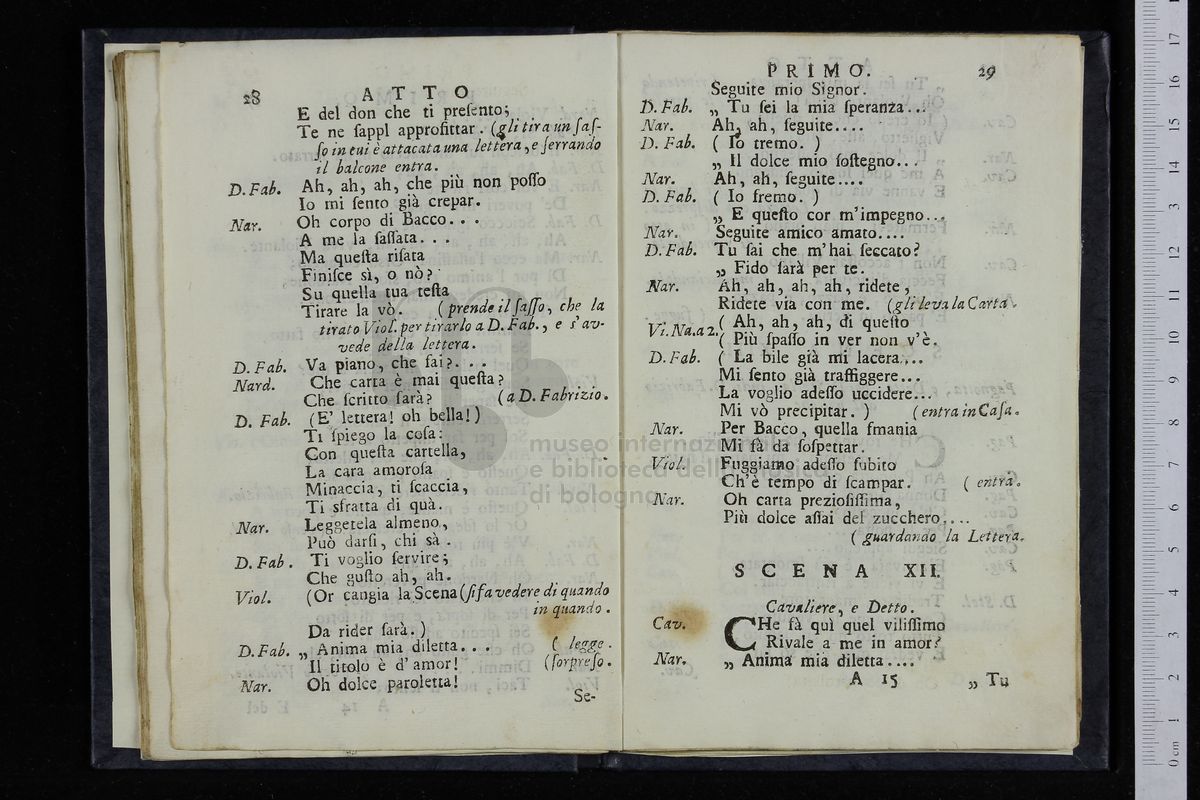 28 ATTO
E del don che ti preſento;
Te ne ſappl approfittar. (gli tira un ſaſ-
ſo in cui è attacata una lettera, e ſerrando
il balcone entra.
D. Fab. Ah, ah, ah, che più non poſſo
Io mi ſento già crepar.
Nar. Oh corpo di Bacco...
A me la ſaſſata...
Ma queſta riſata
Finiſce sì, o nò?
Su quella tua teſta
Tirare la vò. (prende il ſaſſo, che la
tirato Viol. per tirarlo a D. Fab., e s'av-
vede della lettera.
D. Fab. Va piano, che fai?...
Nard. Che carta è mai queſta?
Che ſcritto ſarà? (a D. Fabrizio.
D. Fab. (E' lettera! oh bella!)
Ti ſpiego la coſa:
Con queſta cartella,
La cara amoroſa
Minaccia, ti ſcaccia,
Ti sfratta di quà.
Nar. Leggetela almeno,
Può darſi, chi sà.
D. Fab. Ti voglio ſervire;
Che guſto ah, ah.
Viol. (Or cangia la Scena (ſi fa vedere di quando
in quando.
Da rider ſarà.)
D. Fab. „ Anima mia diletta... ( legge.
Il titolo è d'amor! (ſorpreſo.
Nar. Oh dolce paroletta!
Se-
PRIMO. 29
Seguite mio Signor.
D. Fab. „ Tu ſei la mia ſperanza...
Nar. Ah, ah, ſeguite....
D. Fab. ( Io tremo. )
„ Il dolce mio ſoſtegno...
Nar. Ah, ah, ſeguite....
D. Fab. ( Io fremo. )
„ E queſto cor m'impegno...
Nar. Seguite amico amato....
D. Fab. Tu ſai che m'hai ſeccato?
„ Fido ſarà per te.
Nar. Ah, ah, ah, ah, ridete,
Ridete via con me. (gli leva la Carta.
Vi. Na. a 2. ( Ah, ah, ah, di queſto
( Più ſpaſſo in ver non v'è.
D. Fab. ( La bile già mi lacera...
Mi ſento già traffiggere...
La voglio adeſſo uccidere...
Mi vò precipitar. ) (entra in Caſa.
Nar. Per Bacco, quella ſmania
Mi fà da ſoſpettar.
Viol. Fuggiamo adeſſo ſubito
Ch'è tempo di ſcampar. ( entra.
Nar. Oh carta prezioſiſſima,
Più dolce aſſai del zucchero....
( guardando la Lettera.
SCENA XII.
Cavaliere, e Detto.
Cav. CHe fà quì quel viliſſimo
Rivale a me in amor?
Nar. „ Anima mia diletta....
A 15 „ Tu
museo internazionale
e biblioteca della musica
di bologna
0 cm 1 2 3 4 5 6 7 8 9 10 11 12 13 14 15 16 17